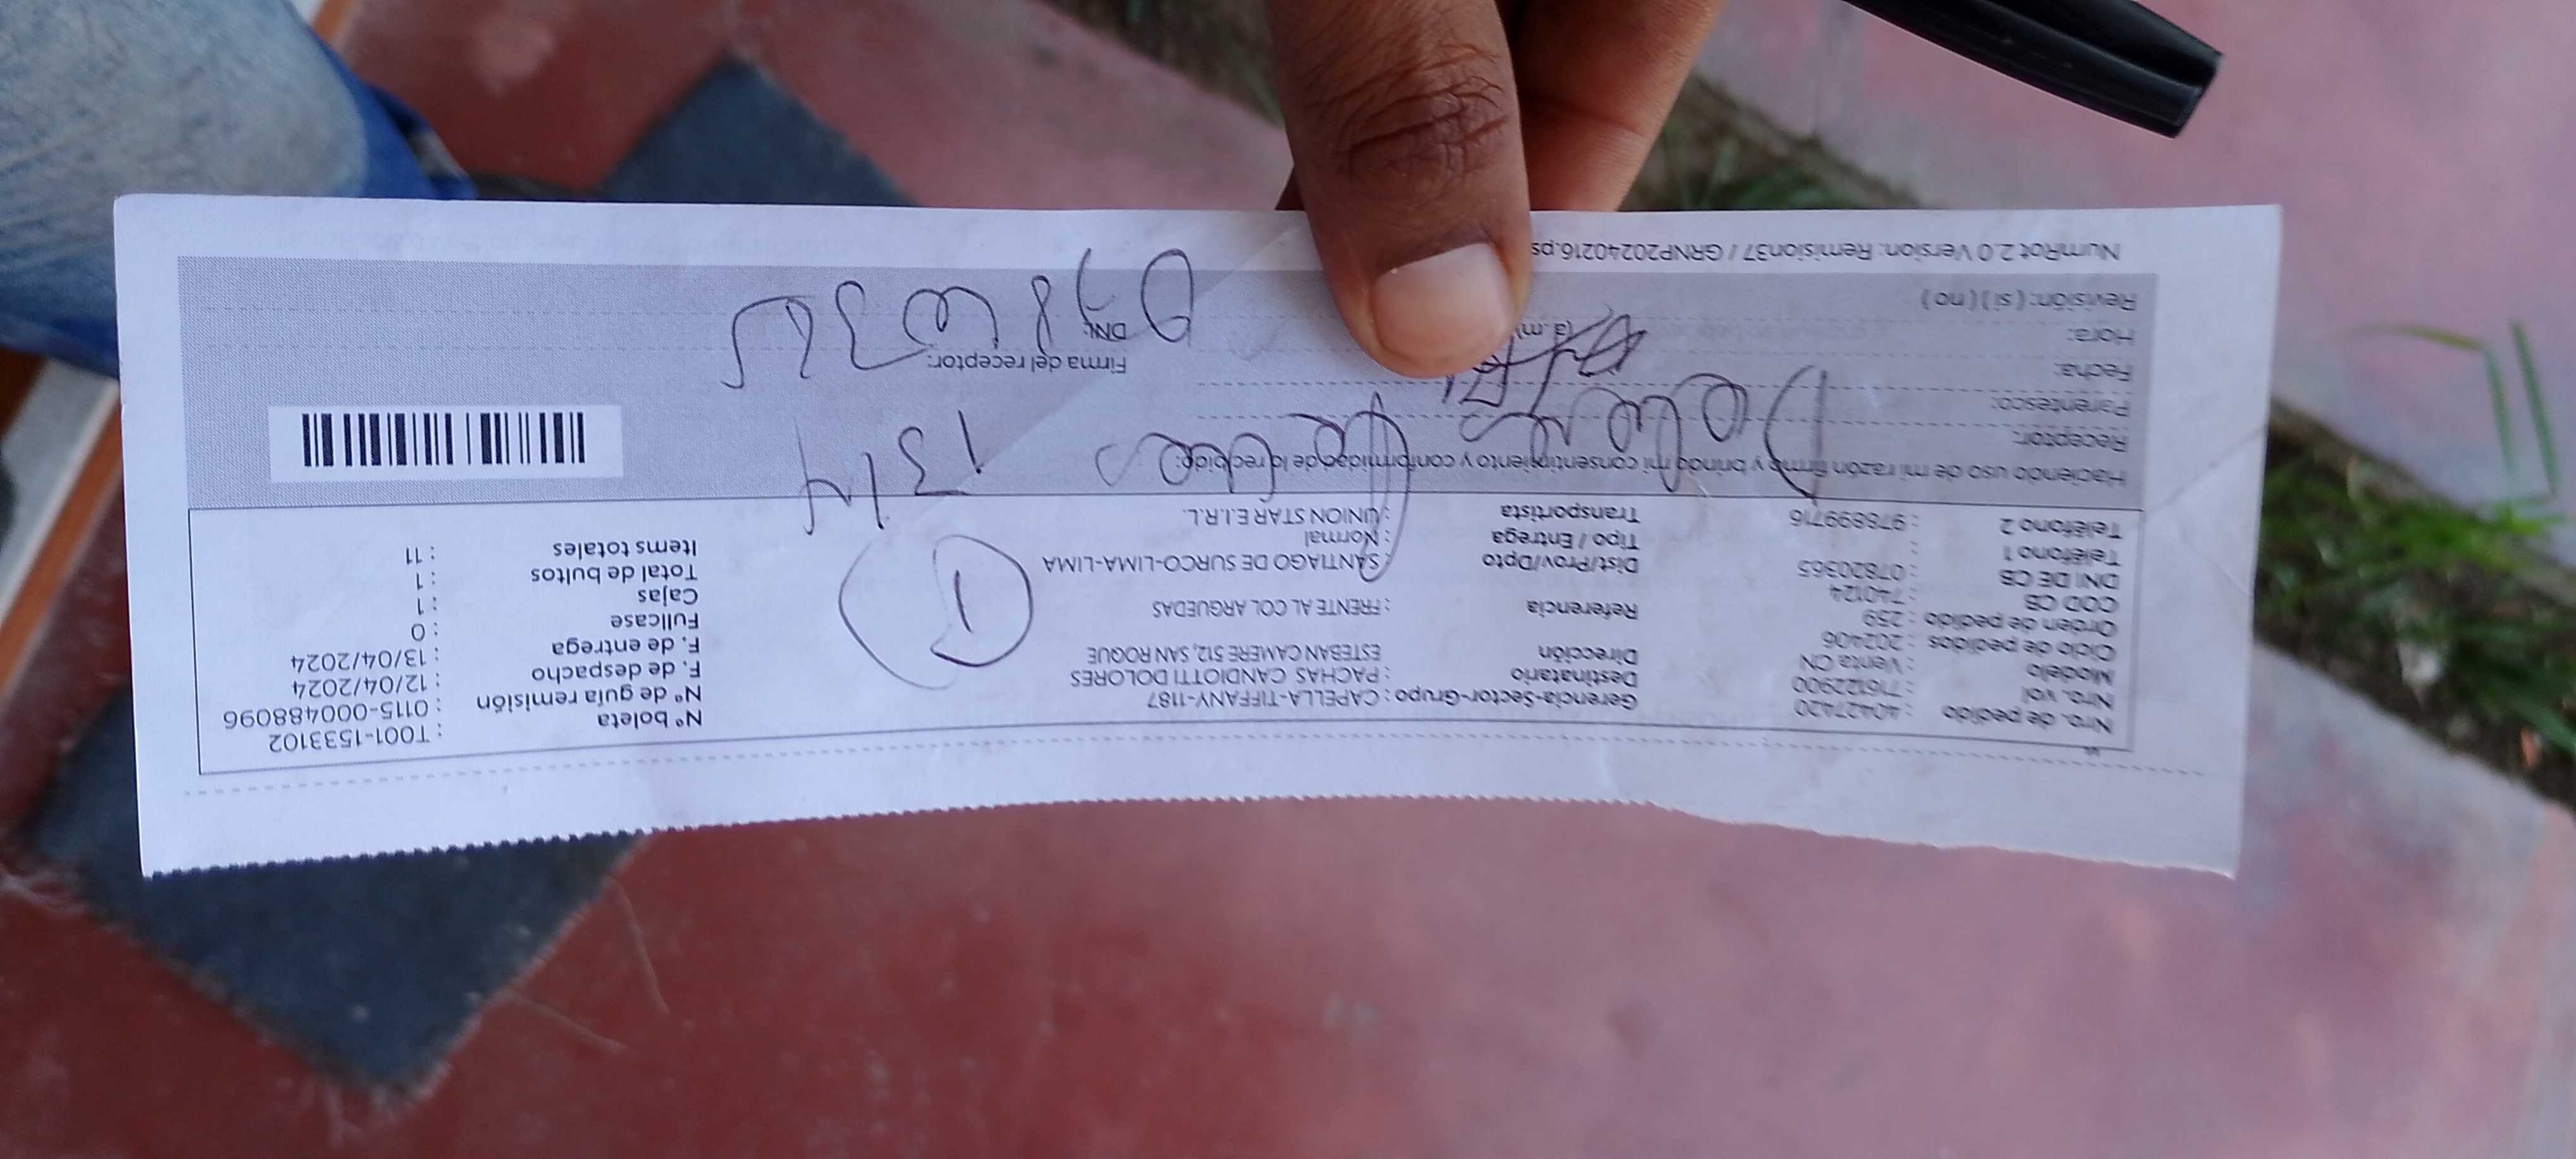 Nro. de pedido : 40427420
Nro. vol : 716122900
Modelo : Venta CN
Ciclo de pedidos : 202406
Orden de pedido : 259
COD CB : 740124
DNI DE CB : 07820365
Teléfono 1 :
Teléfono 2 : 978899716
Gerencia-Sector-Grupo : CAPELLA-TIFFANY-1187
Destinatario : PACHAS CANDIOTTI DOLORES
Dirección ESTEBAN CAMERE 512, SAN ROQUE
Referencia : FRENTE AL COL ARGUEDAS
Dist/Prov/Dpto : SANTIAGO DE SURCO-LIMA-LIMA
Tipo / Entrega : Normal
Transportista : UNION STAR E.I.R.L.
N° boleta : T001-1533102
N° de guía remisión : 0115-000488096
F. de despacho : 12/04/2024
F. de entrega : 13/04/2024
Fullcase : 0
Cajas : 1
Total de bultos : 1
Items totales : 11
1
Haciendo uso de mi razón firmo y brindo mi consentimiento y conformidad de lo recibido:
13/4
Receptor:
Parentesco:
Fecha:
Hora: (a.m)
Revisión: ( si ) ( no )
Firma del receptor:
DNI:
NumRot 2.0 Version. Remision37 / GRNP20240216.ps